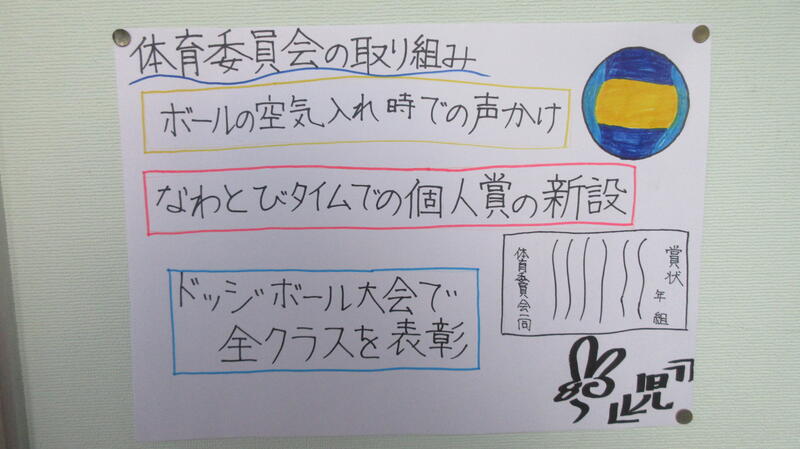 体育委員会の取り組み
ボールの空気入れ時での声かけ
なわとびタイムでの個人賞の新設
ドッジボール大会で
全クラスを表彰
賞状
年 組
体育委員会一同